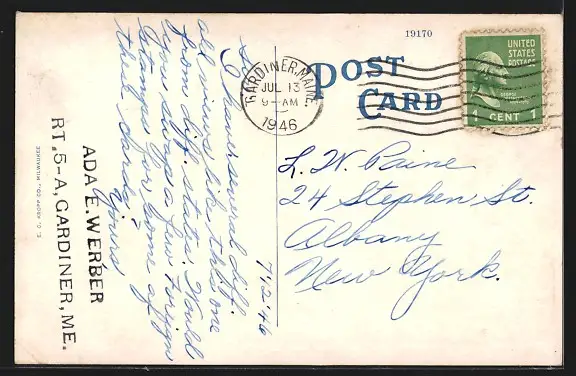 19170
POST
CARD
GARDINER, MAINE
JUL 13
9-AM
1946
UNITED
STATES
POSTAGE
1 CENT 1
L. W. Paine
24 Stephen St.
Albany
New York.
7'12'46
Sir,
I have several diff.
old views like this one
from diff. states. Would
you swap a few foreign
stamps for some of
these cards?
Yours
ADA E. WERBER
RT. 5-A, GARDINER, ME.
E. C. KROPP CO., MILWAUKEE